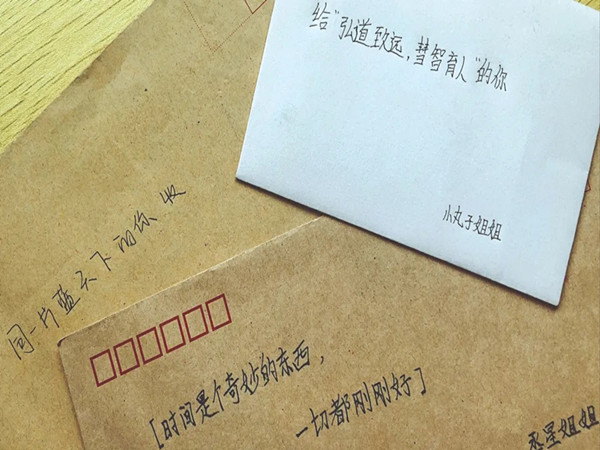 给“弘道致远,彗智育人”的你
小丸子姐姐
同一片蓝天下的你 收
[时间是个奇妙的东西,
一切都刚刚好]
丞星姐姐